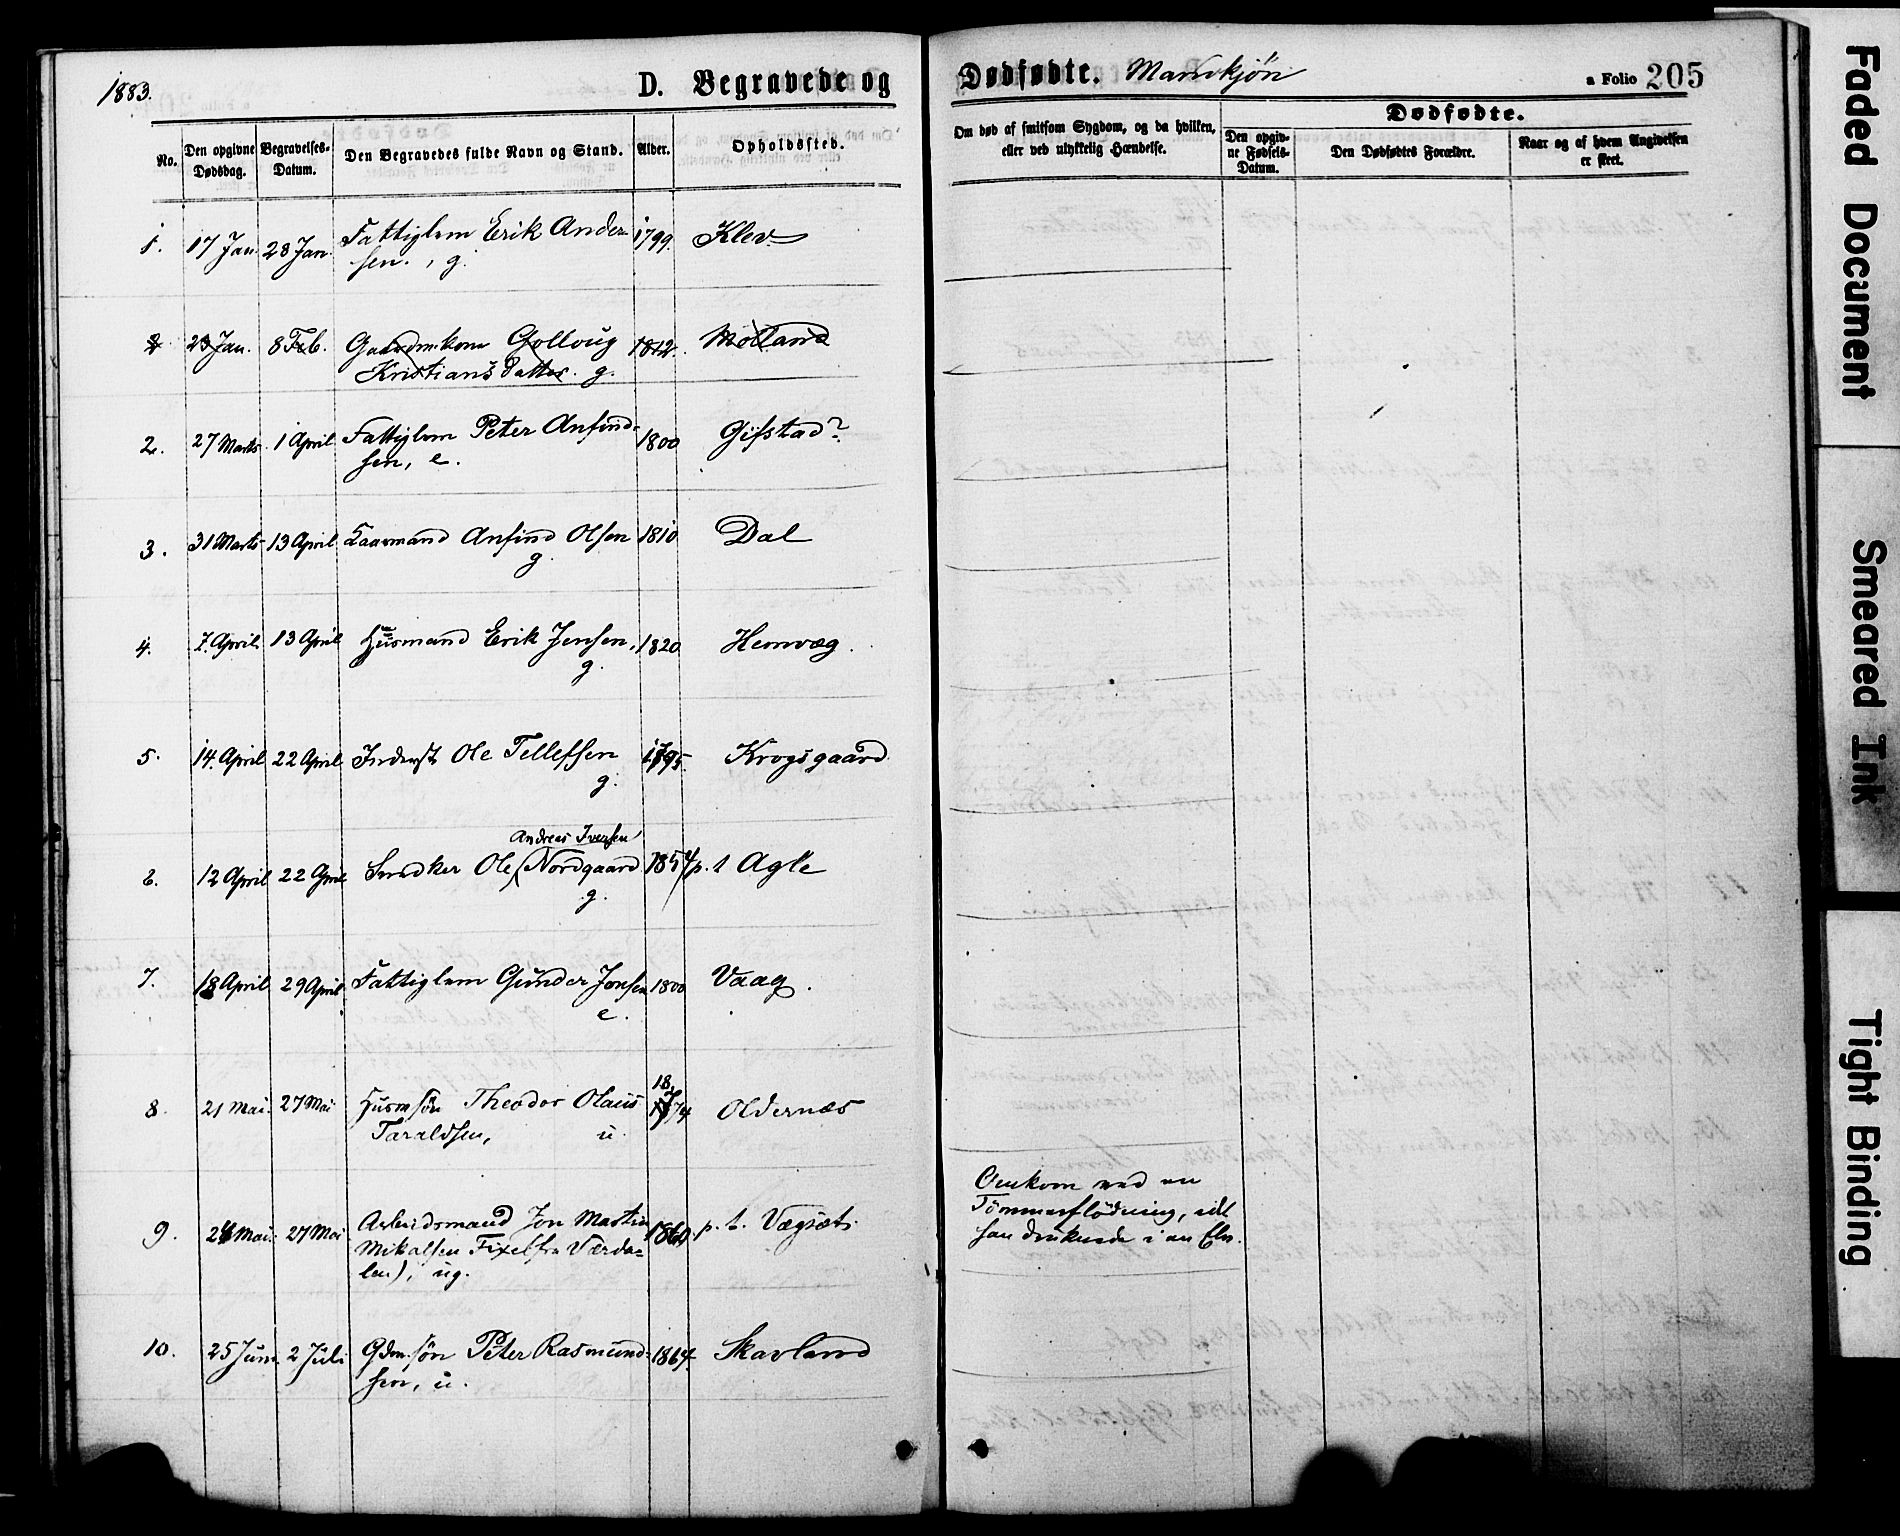 1883.
D. Begravede og
Dødfødte. Mandkjøn
a Folio 205
No.
Den opgivne Dødsdag.
Begravelses-Datum.
Den Begravedes fulde Navn og Stand.
Alder.
Opholdssted.
Om død af smitsom Sygdom, og da hvilken, eller ved ulykkelig Hændelse.
Dødfødte.
Den opgivne Fødsels-Datum.
Den Dødfødtes Forældre.
Naar og af hvem Angivelsen er skeet.
1. 17 Jan. 28 Jan. Fattiglem Erik Ander- 1799. Klev
sen., g.
2 23 Jan. 8 Feb. Gaardmkone Gollaug 1812. Molland
Kristiansdatter. g.
2. 27 Marts. 1 April. Fattiglem Peter Anfind- 1800 Gifstad?
sen, e.
3. 31 Marts 13 April Kaarmand Anfind Olsen 1810 Dal
g.
4. 7. April 13 April Husmand Erik Jensen. 1820 Hemvæg.
g.
5. 14. April 22 April Inderst Ole Tellefsen 1795. Krogsgaard
g.
Andreas Iversen
6. 12 April 22 April Snedker Ole Nordgaard 1854 p. t Agle
g.
7. 18 April 29 April Fattiglem Gunder Jonsen 1800 Vaag.
e.
18
8. 21 Mai. 27 Mai Husmsøn Theodor Olaus 1774 Oldernæs
Taraldsen, u.
9. 24 Mai. 27 Mai Arbeidsmand Jon Martin 1860. p. t. Vægsæt.
Mikalsen Fixel fra Værda-
len), ug.
Omkom ved en
Tømmerflødning, idet
han druknede i en Elv.
10. 25 Juni. 2 Juli Gdm.søn Peter Rasmund- 1864. Skavland
sen, u.
Faded Document
Smeared Ink
Tight Binding